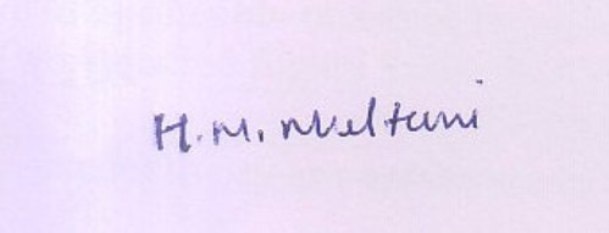 H.M. Mueltani